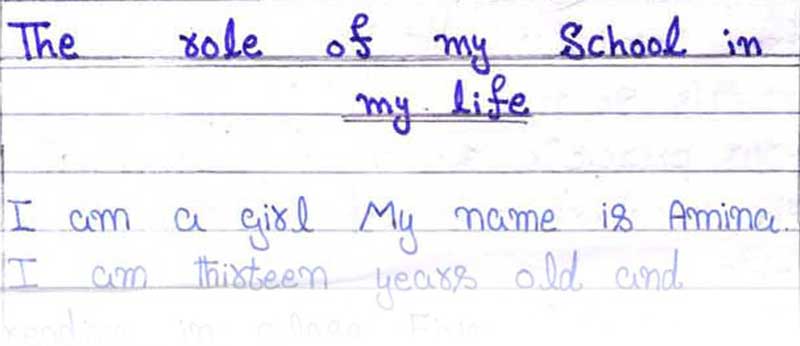 The role of my School in
my life
I am a girl My name is Amina.
I am thirteen years old and
reading in